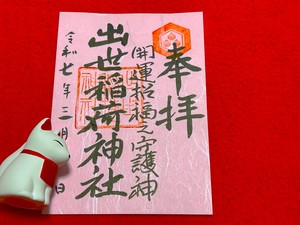 奉拝
開運招福之守護神
出世稲荷神社
令和七年三月 日